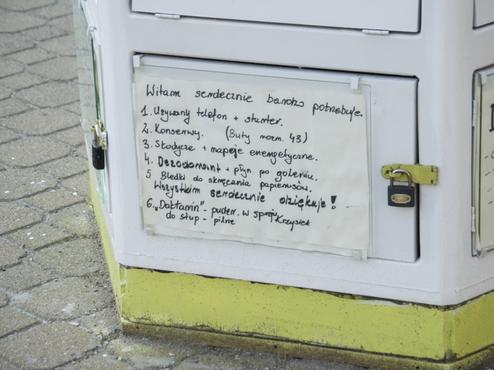 Witam serdecznie bardzo potrzebuje.
1. Używany telefon + starter.
2. Konserwy. (Buty norm. 43)
3. Słodycze + napoje energetyczne.
4. Dezodorant + płyn po goleniu.
5 Bletki do skręcania papierosów.
Wszystkim serdecznie dziękuje!
6. "Daktarin" - puder. w spray Krzysiek
do stup - pilne